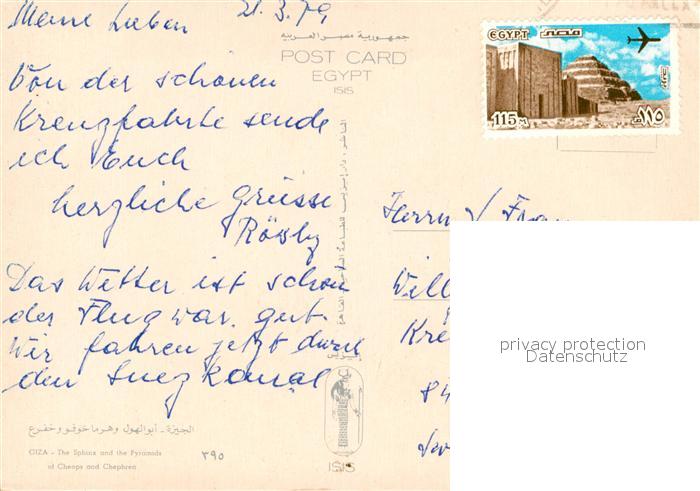 Meine Lieben 21.3.79
Von der schönen
Kreuzfahrt sende
ich Euch
herzliche Grüsse
Das Wetter ist schön
der Flug war gut.
Wir fahren jetzt durch
den Suez Kanal
جمهورية مصر العربية
POST CARD
EGYPT
ISIS
EGYPT مصر
115 M ١١٥
Herrn / Frau
Will
Kre
84
privacy protection
Datenschutz
الجيزة - أبو الهول وهرما خوفو وخفرع
GIZA - The Sphinx and the Pyramids
of Cheops and Chephren
٣٩٥
ISIS